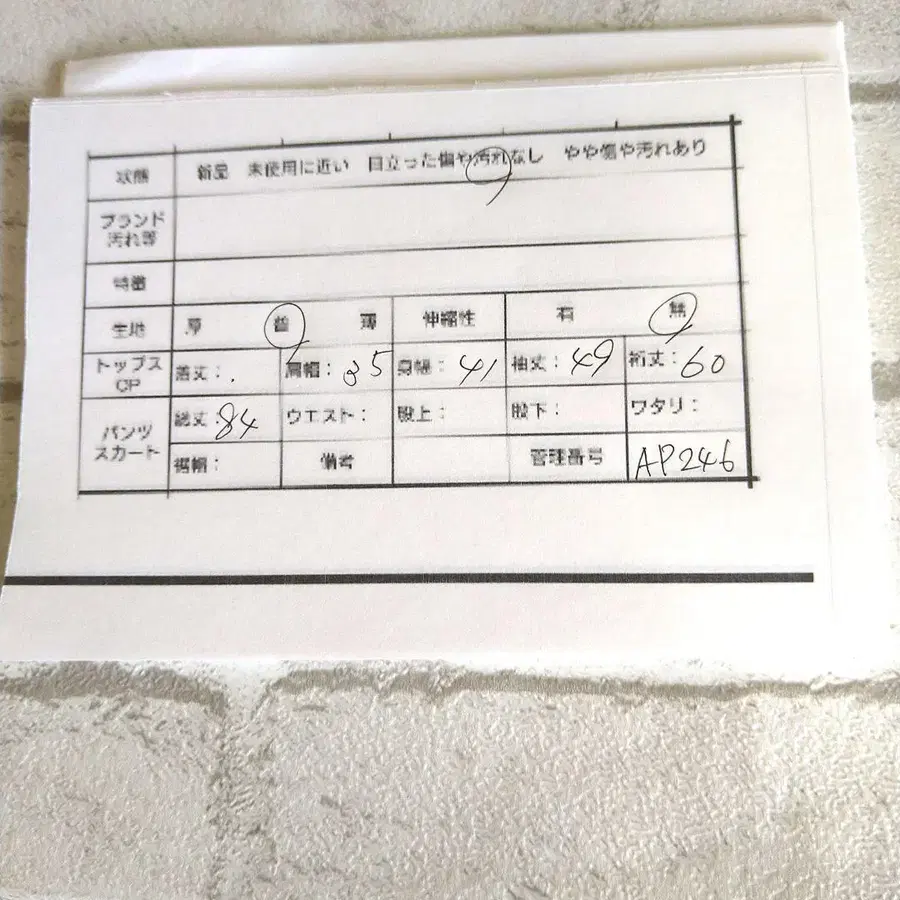 状態 新品 未使用に近い 目立った傷や汚れなし やや傷や汚れあり
ブランド
汚れ等
特徴
生地 厚 普 薄 伸縮性 有 無
トップス
OP
着丈: . 肩幅: 35 身幅: 41 袖丈: 49 裄丈: 60
パンツ
スカート
総丈: 84 ウエスト: 股上: 股下: ワタリ:
裾幅: 備考 管理番号 AP246